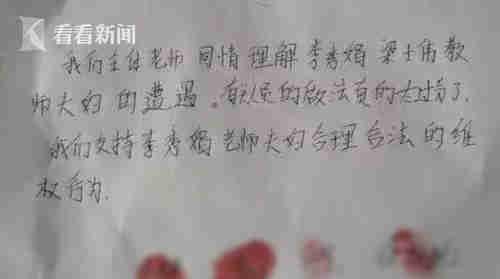 看看新闻
我们全体老师 同情 理解 李秀娟 梁士伟教
师夫妇 的遭遇。有些人的做法真的太过分了.
我们支持李秀娟老师夫妇合理合法的维
权行为.